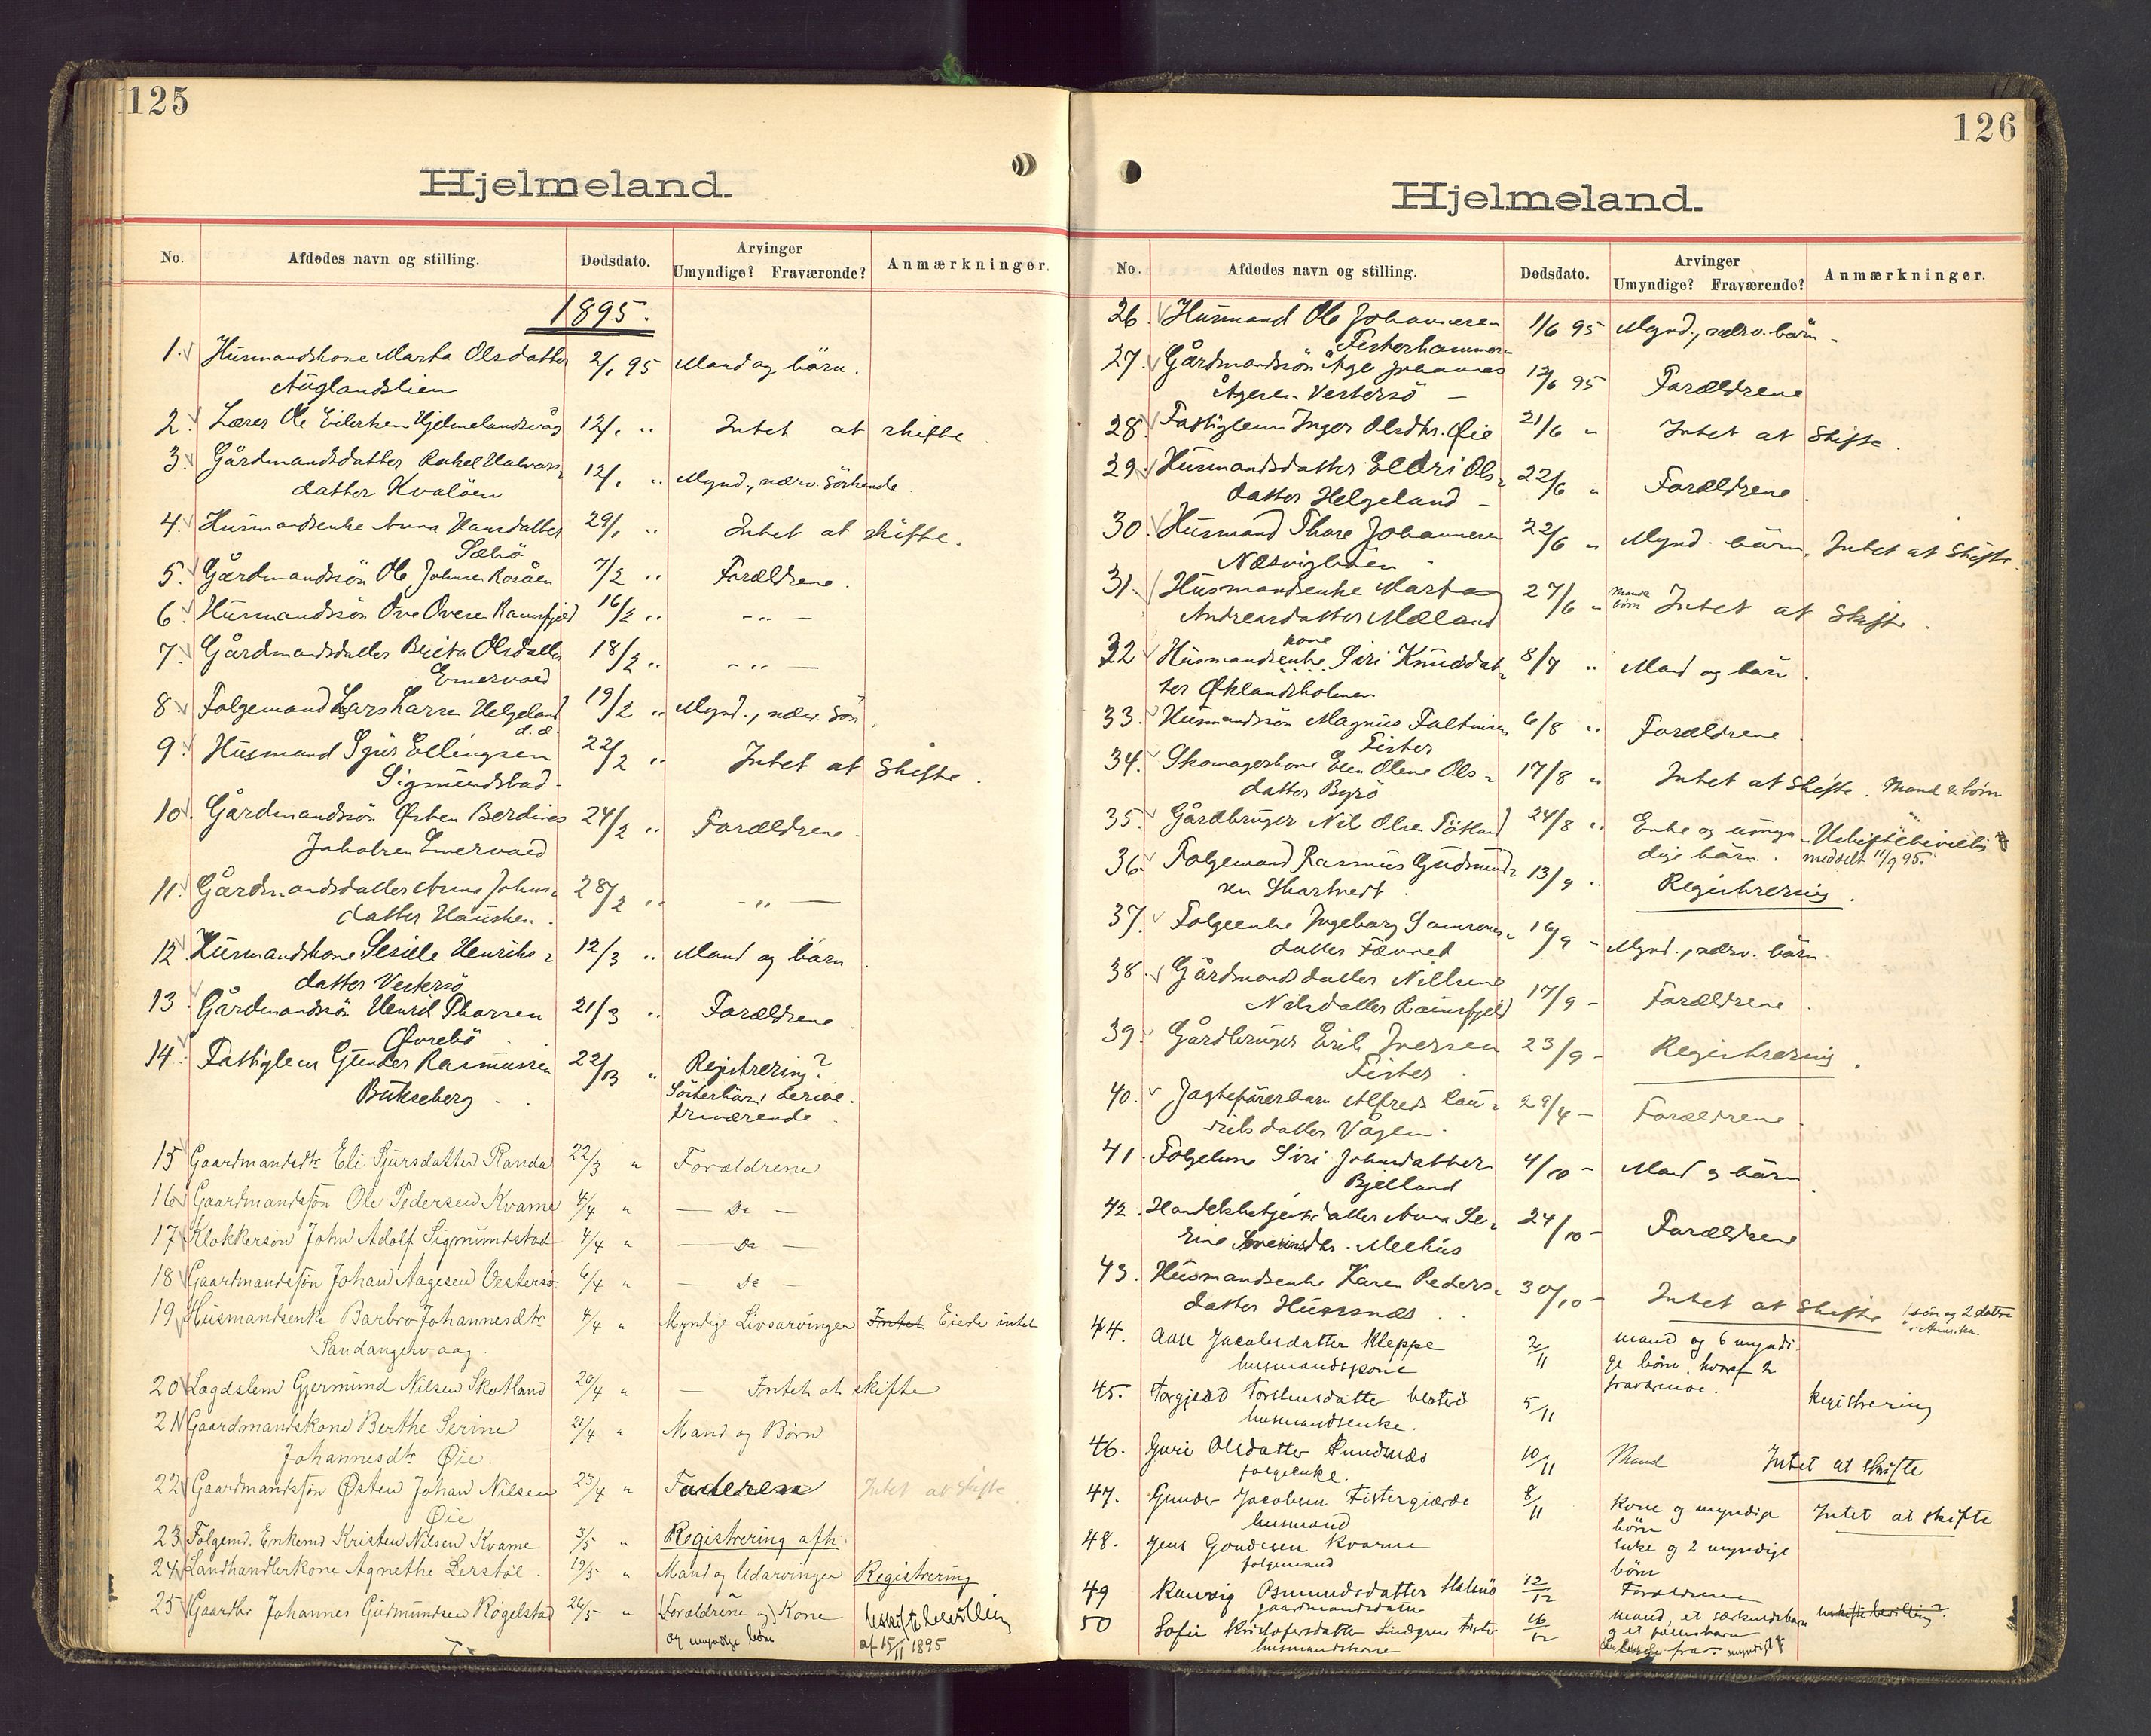 125
Hjelmeland.
No. Afdødes navn og stilling. Dødsdato. Arvinger Umyndige? Fraværende? Anmærkninger.
1895.
1. Husmandskone Marta Olsdatter 2/1 95 Mand og børn.
Auglandslien
2. Lærer Ole Eilertsen Hjelmelandsvåg 12/1 " Intet at skifte.
3. Gårdmandsdatter Rakel Halvors-
datter Kvaløen 12/1 " Mynd., nærv. søskende.
4. Husmandsenke Anna Hansdatter 29/1 " Intet at skifte.
Sæbø
5. Gårdmandssøn Ole Johnsen Rosåen 7/2 " Forældrene.
6. Husmandssøn Ove Ovesen Ramsfjeld 16/2 " - " -
7. Gårdmandsdatter Brita Olsdatter 18/2 " - " -
8. Folgemand Lars Larsen Helgeland 19/2 " Mynd., nærv. søn.
9. Husmand Sjur Ellingsen 22/2 " Intet at skifte.
Sigmundstad
10. Gårdmandssøn Østen Berdines 24/2 " Forældrene.
11. Gårdmandsdatter Anna Johns- 28/2 " - " -
datter Hausken.
12. Husmandskone Serine Henriks- 12/3 " Mand og børn.
datter Vestersø
13. Gårdmandssøn Henrik Thorsen 21/3 " Forældrene
Øvrebø
14. Fattiglem Gunder Rasmussen 22/3 " Registrering?
Bukseberg. Søsterbørn,
fraværende.
15 Gaardmandsdtr Eli Sjursdatter Randa 22/3 " Forældrene
16 Gaardmandssøn Ole Pedersen Kvame 4/4 " — Do —
17 Klokkersøn John Adolf Sigmundstad 4/4 " — Do —
18 Gaardmandssøn Johan Aagesen Vestersø 6/4 " — Do —
19 Husmandsenke Barbro Johannesdtr 4/4 " Myndige Livsarvinger Intet Eiede intet
Sandangervaag.
20 Lægdslem Gjermund Nilsen Skotland 20/4 " — Intet at skifte
21 Gaardmandskone Berthe Serine 21/4 " Mand og Børn
Johannesdtr Øie.
22 Gaardmandssøn Østen Johan Nilsen 23/4 " Faderen Intet at skifte
Øie
23 Folgemd. Enkemd Kristen Nilsen Kvame 3/5 " Registrering afh.
24 Landhandlerkone Agnethe Lerstøl. 19/5 " Mand og Udarvinger Registrering
25 Gaardbr Johannes Gudmundsen Rogelstad 26/5 " Forældrene og Kone
og umyndige børn af 15/11 1895
126
Hjelmeland.
No. Afdødes navn og stilling. Dødsdato. Arvinger Umyndige? Fraværende? Anmærkninger.
26. Husmand Ole Johannesen 1/6 95 Mynd., nærv. børn.
Fisterhammeren
27. Gårdmandssøn Åge Johannes 12/6 95 Forældrene
Ågesen Vestersø —
28. Fattiglem Inger Olsdtr. Øie 21/6 " Intet at skifte.
29. Husmandsdatter Eldri Ols- 22/6 " Forældrene.
datter Helgeland —
30. Husmand Thore Johannesen 22/6 " Mynd. børn. Intet at skifte.
31. Husmandsenke Marta 27/6 " Intet at skifte.
Andreasdatter Mæland
32 Husmandsenke kone Siri Knudsdat- 8/7 " Mand og børn.
ter Øklandsholmen
33. Husmandssøn Magnus Faltinsen 6/8 " Forældrene.
Fister
34. Skomagerkone Elen Olene Ols- 17/8 " Intet at skifte. Mand & børn
datter Byrø
35. Gårdbruger Nils Olsen Tøtland 24/8 " Enke og umyn- Uskiftebevilling
dige børn. meddelt 11/9 95.
36. Folgemand Rasmus Gudmund- 13/9 " Registrering.
sen Skartveit.
37. Folgeenke Ingeborg Samsons- 16/9 - Mynd., nærv. børn.
datter
38. Gårdmandsdatter Nilsine 17/9 - Forældrene.
Nilsdatter Ramsfjeld
39. Gårdbruger Erik Iversen 23/9 - Registrering.
Fister
40. Jagteførerbarn Alfreda Lau- 29/4 - Forældrene.
ritsdatter Vågen.
41. Folgekone Siri Johnsdatter 4/10 - Mand & børn.
Bjelland
42. Handelsbetjentsdatter Anna Se- 24/10 - Forældrene
rine Severinsdtr. Meehus
43. Husmandsenke Karen Peders- 30/10 - Intet at skifte 1 søn og 2 døtre
datter i Amerika.
44. Aase Jacobsdatter Kleppe 2/11 mand og 6 myndi-
husmandskone ge børn, hvoraf 2
fraværende.
45. Torgjerd Torstensdatter Vestersø 5/11 Registrering
husmandsenke.
46. Guri Olsdatter Sundsnæs 10/11 Mand Intet at skifte
folgeenke.
47. Gunder Jacobsen Fistergjærde 8/11 kone og myndige Intet at skifte
husmand børn
48. Jens Gondesen Kvame enke og 2 myndige
folgemand børn
49 Ranveig Osmundsdatter 12/12 Forældrene
gaardmandsdatter
50 Sofie Kristofersdatter Lindgren Fister 16/12 mand, et særkuldsbarn uskiftebevilling?
husmandskone og et fællesbarn